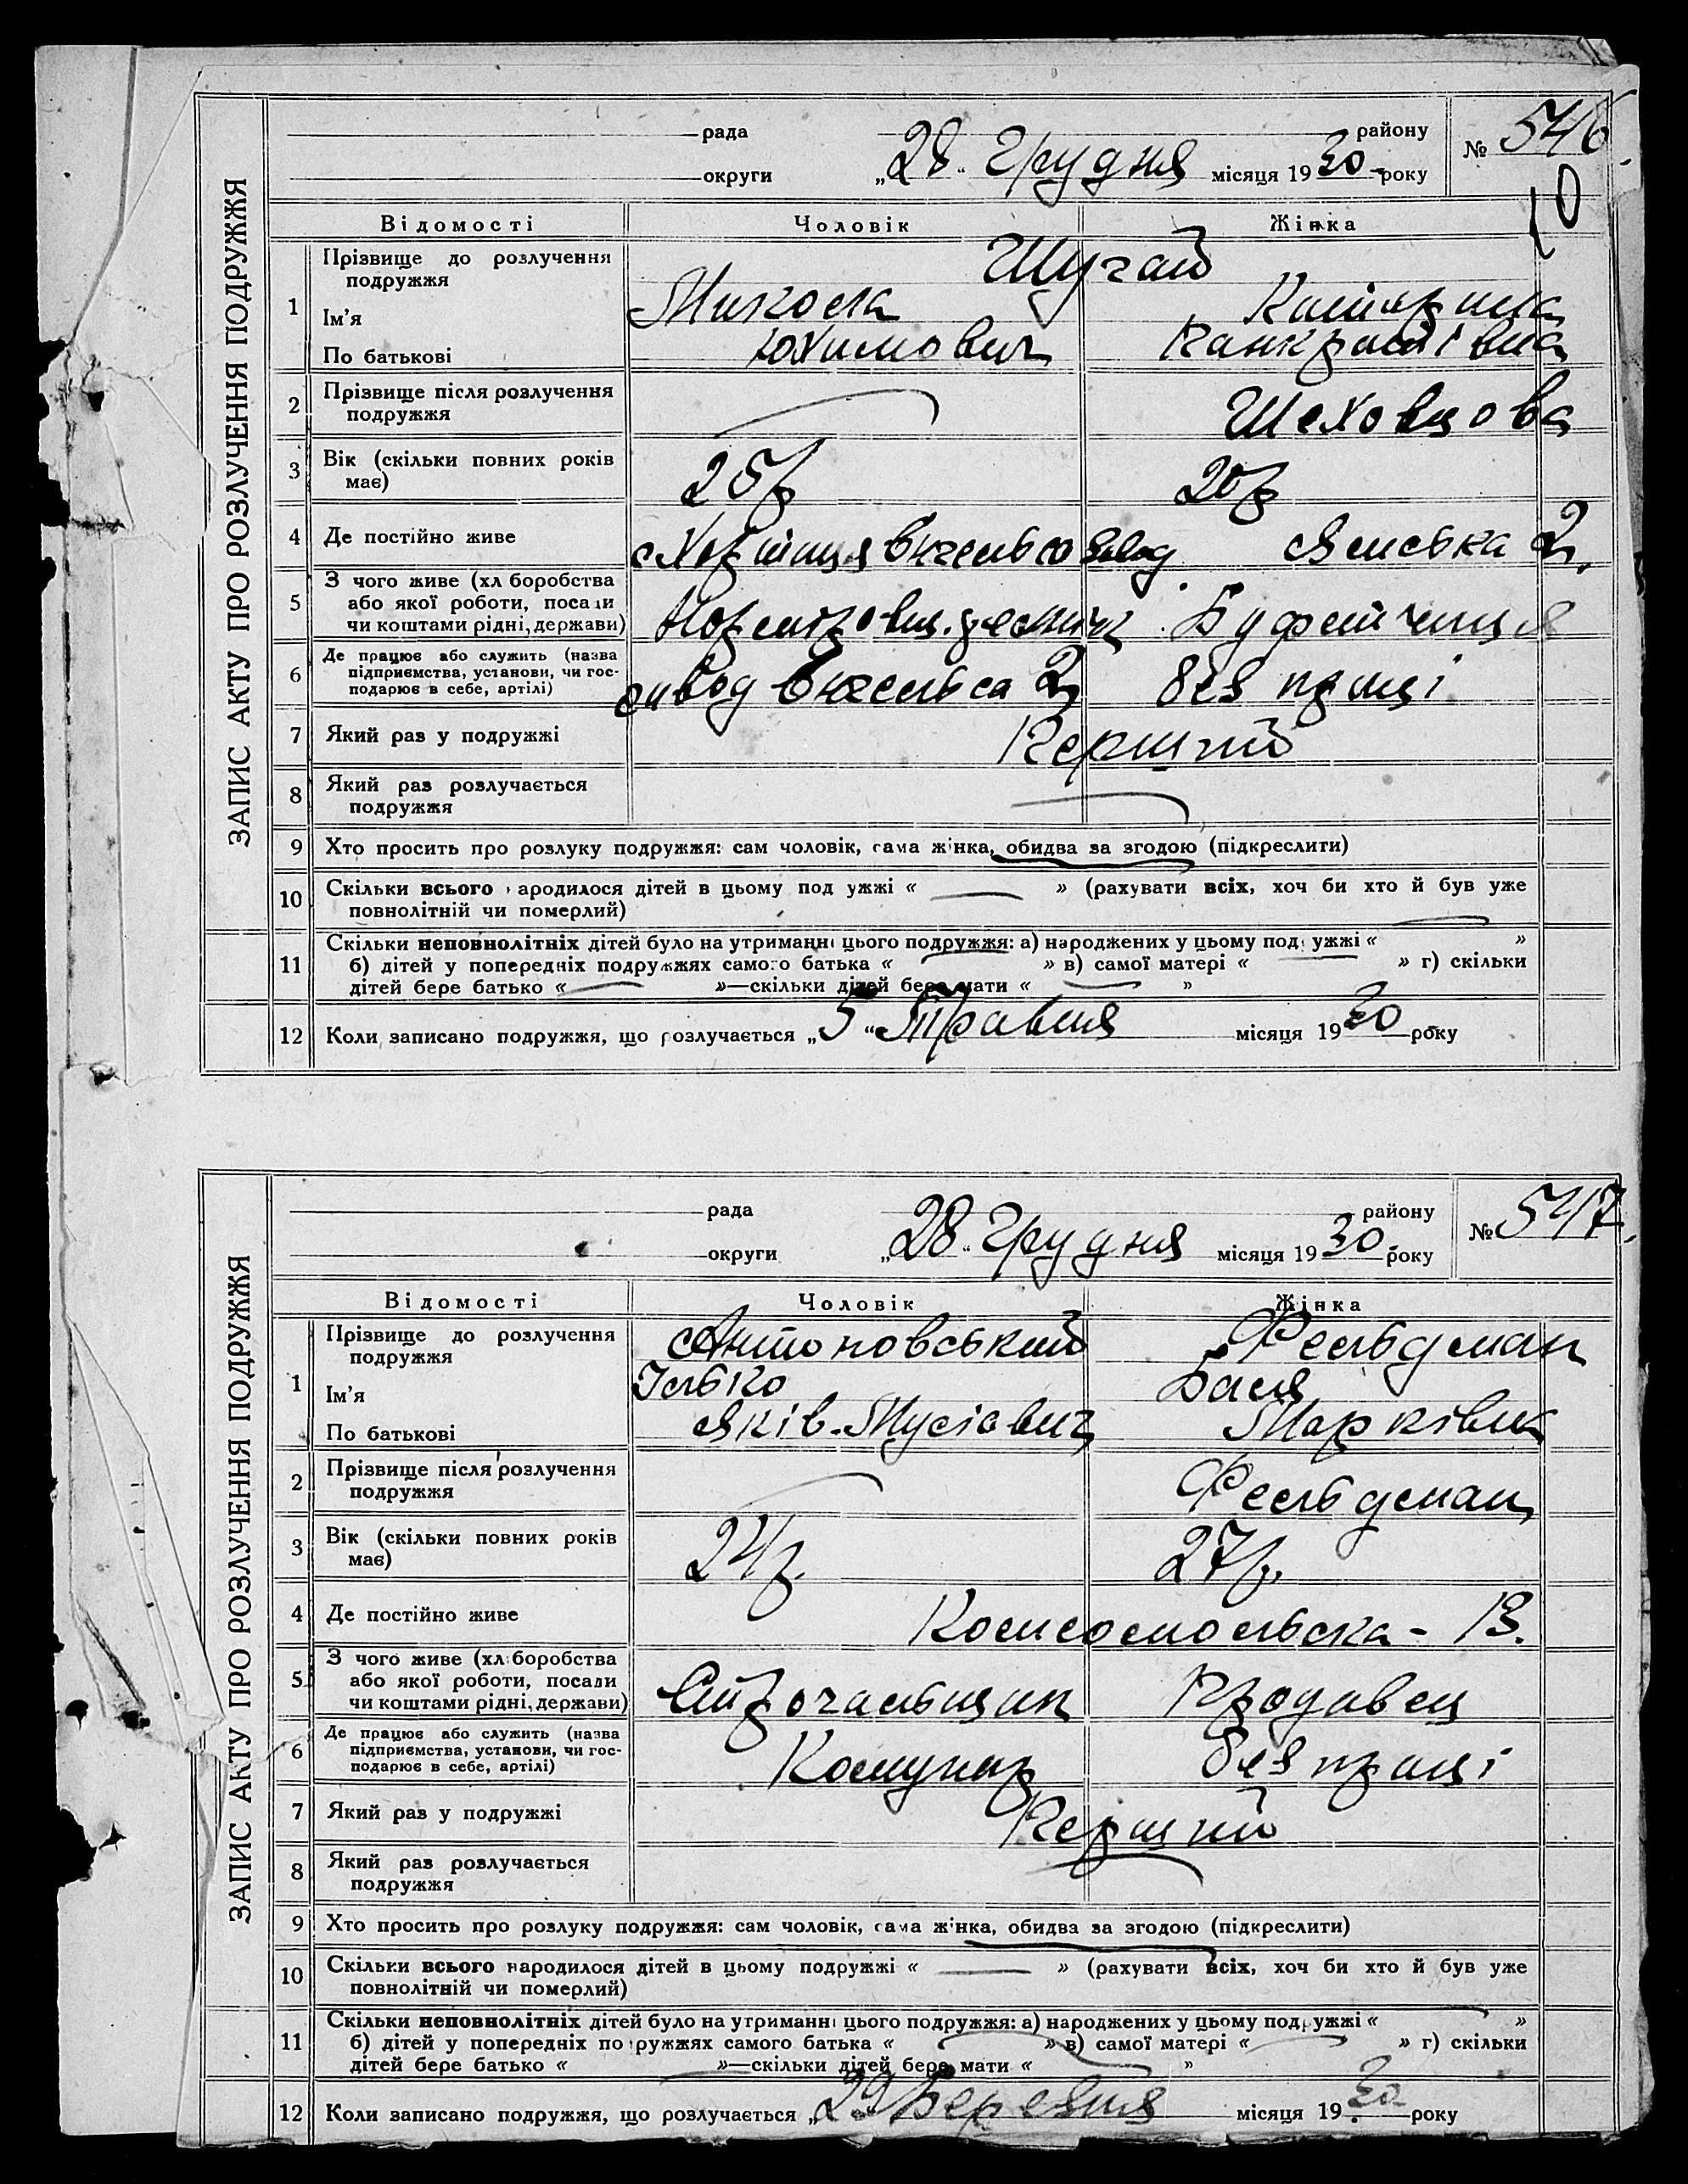 ЗАПИС АКТУ ПРО РОЗЛУЧЕННЯ ПОДРУЖЖЯ
рада району № 546
10
округи „28“ Грудня місяця 1930 року
Відомості Чоловік Жінка
1 Прізвище до розлучення подружжя Шугай
Ім'я Микола Катерина
По батькові Юхимович Панкратівна
2 Прізвище після розлучення
подружжя Шеховцова
3 Вік (скільки повних років
має) 25р 20р
4 Де постійно живе Хортиця Енгельса завод 2,
5 З чого живе (хл боробства
або якої роботи, посади
чи коштами рідні, держави) Буфетчиця
6 Де працює або служить (назва
підприємства, установи, чи гос-
подарює в себе, артілі) завод Енгельса 2 без праці
7 Який раз у подружжі Перший
8 Який раз розлучається
подружжя
9 Хто просить про розлуку подружжя: сам чоловік, сама ж'нка, обидва за згодою (підкреслити)
10 Скільки всього ародилося дітей в цьому под ужжі « » (рахувати всіх, хоч би хто й був уже
повнолітній чи померлий)
11 Скільки неповнолітніх дітей було на утриманні цього подружжя: а) народжених у цьому под ужжі « »
б) дітей у попередніх подружжях самого батька « » в) самої матері « » г) скільки
дітей бере батько « »—скільки дітей бере мати « »
12 Коли записано подружжя, що розлучається „5“ Травня місяця 1930 року
ЗАПИС АКТУ ПРО РОЗЛУЧЕННЯ ПОДРУЖЖЯ
рада району № 547.
округи „28“ Грудня місяця 1930. року
Відомості Чоловік Жінка
1 Прізвище до розлучення
подружжя Антоновський Фельдман
Ім'я Ілько Бася
По батькові Яків-Мусіович Марківна
2 Прізвище після розлучення
подружжя Фельдман
3 Вік (скільки повних років
має) 24р. 27р.
4 Де постійно живе Комсомольська - 13.
5 З чого живе (хл боробства
або якої роботи, посади
чи коштами рідні, держави) Продавец
6 Де працює або служить (назва
підприємства, установи, чи гос-
подарює в себе, артілі) Комунар без праці
7 Який раз у подружжі Перший
8 Який раз розлучається
подружжя
9 Хто просить про розлуку подружжя: сам чоловік, сама ж'нка, обидва за згодою (підкреслити)
10 Скільки всього народилося дітей в цьому подружжі « » (рахувати всіх, хоч би хто й був уже
повнолітній чи померлий)
11 Скільки неповнолітніх дітей було на утриманні цього подружжя: а) народжених у цьому подружжі « »
б) дітей у попередніх по ружжях самого батька « » в) самої матері « » г) скільки
дітей бере батько « »—скільки дітей бере мати « »
12 Коли записано подружжя, що розлучається „29 Березня місяця 1930 року